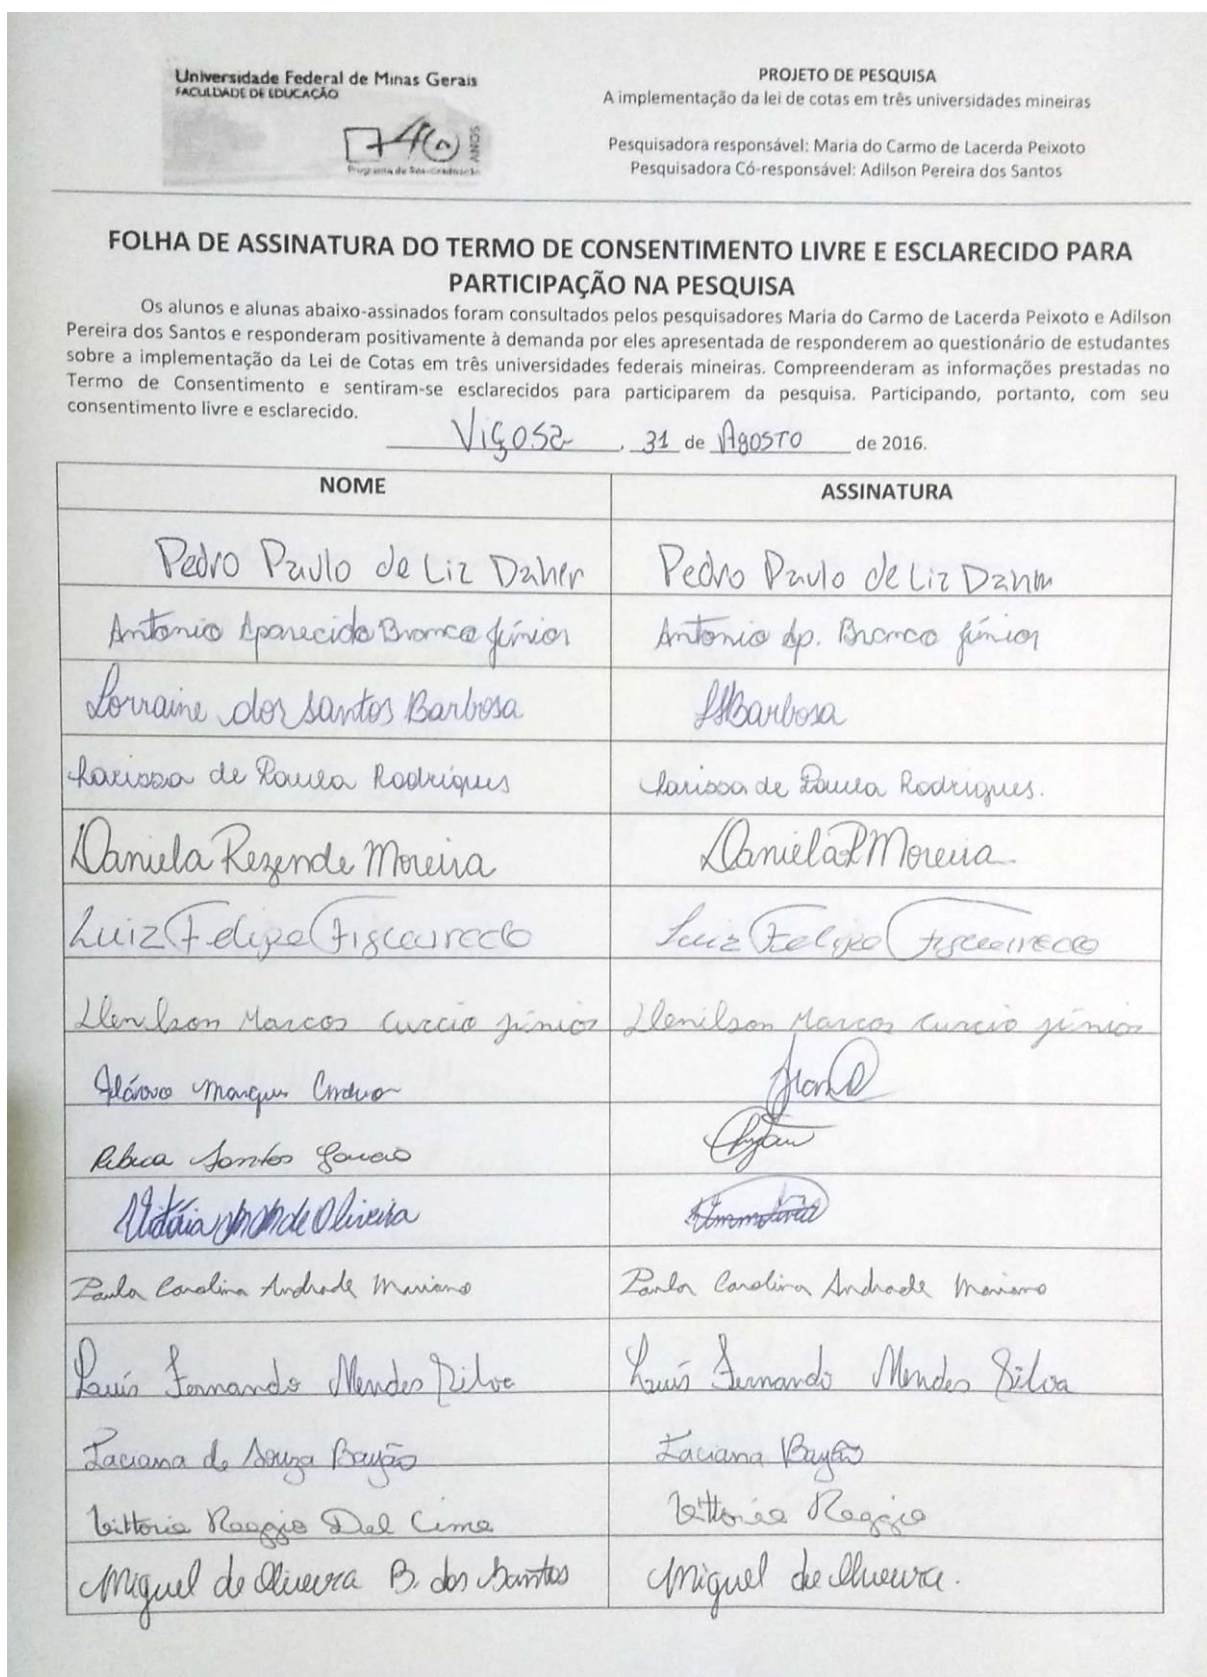 Universidade Federal de Minas Gerais
FACULDADE DE EDUCAÇÃO
40
ANOS
Programa de Pós-Graduação
PROJETO DE PESQUISA
A implementação da lei de cotas em três universidades mineiras
Pesquisadora responsável: Maria do Carmo de Lacerda Peixoto
Pesquisadora Có-responsável: Adilson Pereira dos Santos
FOLHA DE ASSINATURA DO TERMO DE CONSENTIMENTO LIVRE E ESCLARECIDO PARA
PARTICIPAÇÃO NA PESQUISA
Os alunos e alunas abaixo-assinados foram consultados pelos pesquisadores Maria do Carmo de Lacerda Peixoto e Adilson
Pereira dos Santos e responderam positivamente à demanda por eles apresentada de responderem ao questionário de estudantes
sobre a implementação da Lei de Cotas em três universidades federais mineiras. Compreenderam as informações prestadas no
Termo de Consentimento e sentiram-se esclarecidos para participarem da pesquisa. Participando, portanto, com seu
consentimento livre e esclarecido.
Viçosa, 31 de Agosto de 2016.
NOME ASSINATURA
Pedro Paulo de Liz Daher Pedro Paulo de Liz Daher
Antonio Aparecido Branco Júnior Antonio Ap. Branco Júnior
Lorraine dos Santos Barbosa Barbosa
Larissa de Paula Rodrigues Larissa de Paula Rodrigues.
Daniela Rezende Moreira Daniela R Moreira
Luiz Felipe Figueiredo Luiz Felipe Figueiredo
Marcos Curcio Júnior Marcos Curcio Júnior
Marques
Rebeca Santos
Vitória de Oliveira
Paula Carolina Andrade Mariano Paula Carolina Andrade Mariano
Luís Fernando Mendes Silva Luís Fernando Mendes Silva
Taciana de Souza Bayão Taciana Bayão
Vittoria Raggio Del Cima Vittoria Raggio
Miguel de Oliveira B. dos Santos Miguel de Oliveira.